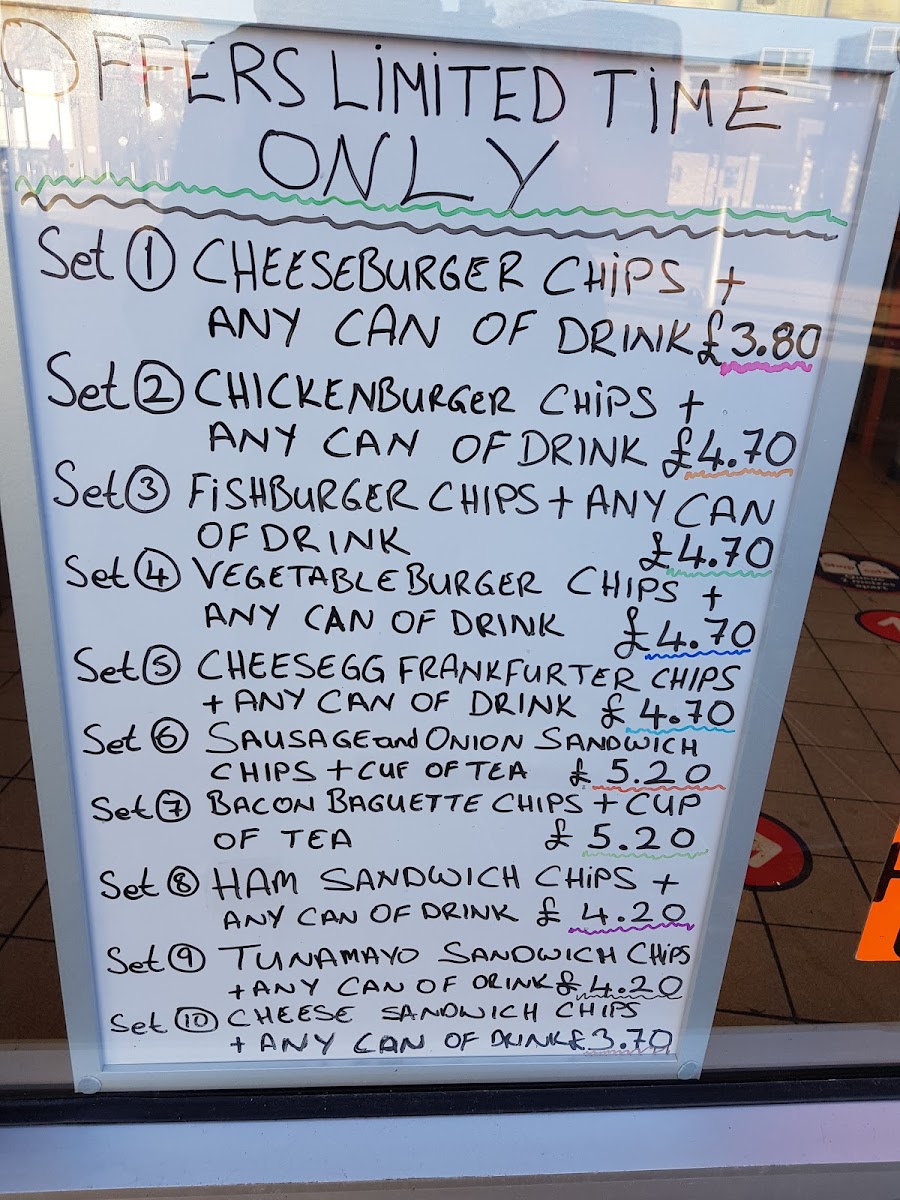 OFFERS LIMITED TIME
ONLY
Set ① CHEESEBURGER CHIPS +
ANY CAN OF DRINK £3.80
Set ② CHICKENBURGER CHIPS +
ANY CAN OF DRINK £4.70
Set ③ FISHBURGER CHIPS + ANY CAN
OF DRINK £4.70
Set ④ VEGETABLE BURGER CHIPS +
ANY CAN OF DRINK £4.70
Set ⑤ CHEESEGG FRANKFURTER CHIPS
+ ANY CAN OF DRINK £4.70
Set ⑥ SAUSAGE and ONION SANDWICH
CHIPS + CUF OF TEA £5.20
Set ⑦ BACON BAGUETTE CHIPS + CUP
OF TEA £5.20
Set ⑧ HAM SANDWICH CHIPS +
ANY CAN OF DRINK £4.20
Set ⑨ TUNAMAYO SANDWICH CHIPS
+ ANY CAN OF DRINK £4.20
Set ⑩ CHEESE SANDWICH CHIPS
+ ANY CAN OF DRINK £3.70